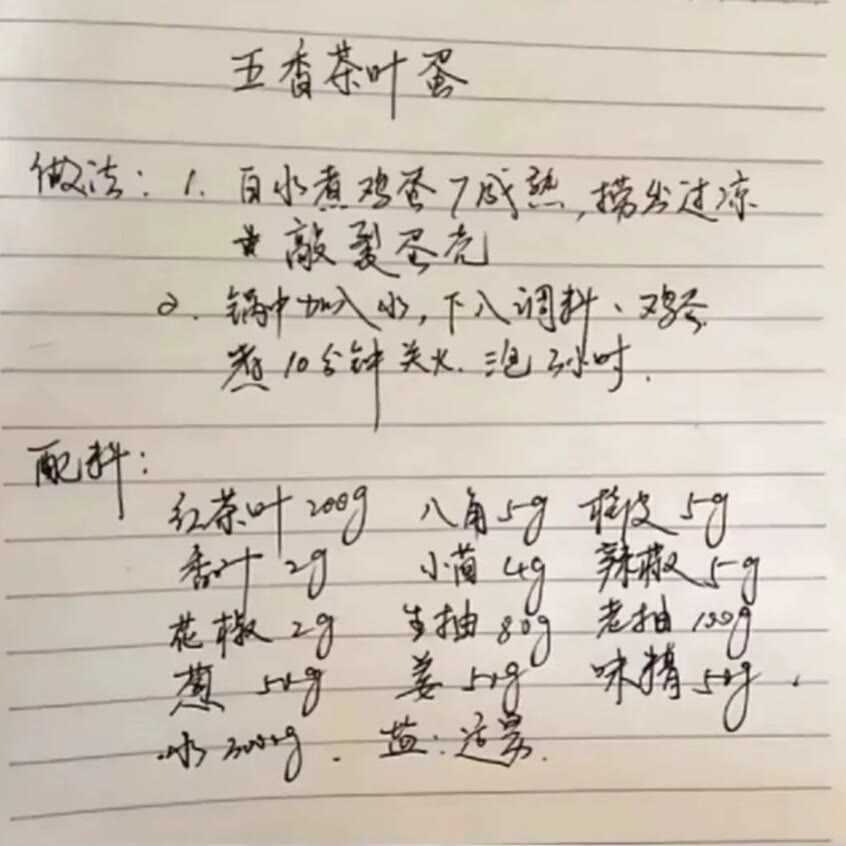 五香茶叶蛋
做法: 1. 白水煮鸡蛋7成熟,捞出过凉
敲裂蛋壳
2. 锅中加入水,下入调料、鸡蛋
煮10分钟关火. 泡3小时.
配料:
红茶叶200g 八角5g 桂皮5g
香叶2g 小茴4g 辣椒5g
花椒2g 生抽80g 老抽100g
葱50g 姜50g 味精50g.
水3000g. 盐:适量.